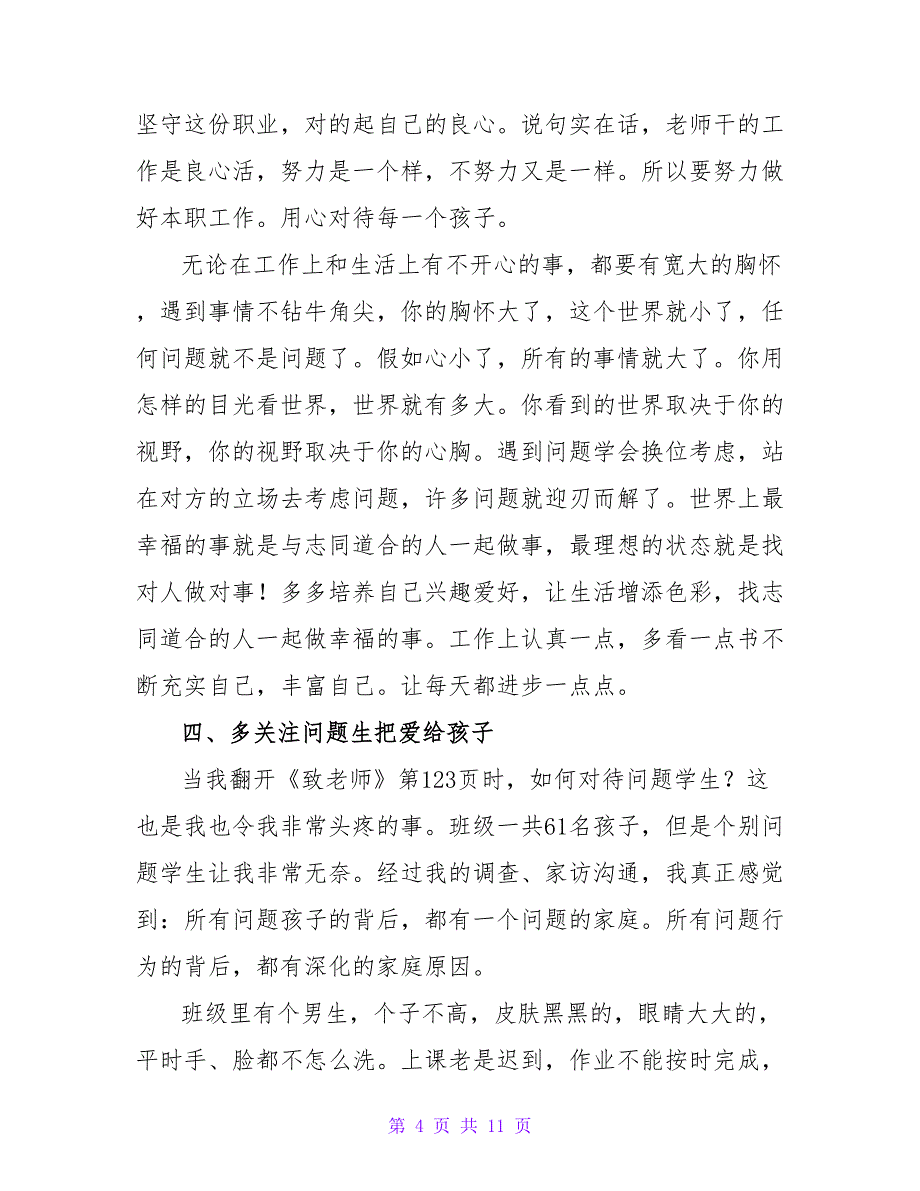 坚守这份职业，对的起自己的良心。说句实在话，老师干的工
作是良心活，努力是一个样，不努力又是一样。所以要努力做
好本职工作。用心对待每一个孩子。
无论在工作上和生活上有不开心的事，都要有宽大的胸怀
，遇到事情不钻牛角尖，你的胸怀大了，这个世界就小了，任
何问题就不是问题了。假如心小了，所有的事情就大了。你用
怎样的目光看世界，世界就有多大。你看到的世界取决于你的
视野，你的视野取决于你的心胸。遇到问题学会换位考虑，站
在对方的立场去考虑问题，许多问题就迎刃而解了。世界上最
幸福的事就是与志同道合的人一起做事，最理想的状态就是找
对人做对事！多多培养自己兴趣爱好，让生活增添色彩，找志
同道合的人一起做幸福的事。工作上认真一点，多看一点书不
断充实自己，丰富自己。让每天都进步一点点。
四、多关注问题生把爱给孩子
当我翻开《致老师》第123页时，如何对待问题学生？这
也是我也令我非常头疼的事。班级一共61名孩子，但是个别问
题学生让我非常无奈。经过我的调查、家访沟通，我真正感觉
到：所有问题孩子的背后，都有一个问题的家庭。所有问题行
为的背后，都有深化的家庭原因。
班级里有个男生，个子不高，皮肤黑黑的，眼睛大大的，
平时手、脸都不怎么洗。上课老是迟到，作业不能按时完成，
第 4 页 共 11 页